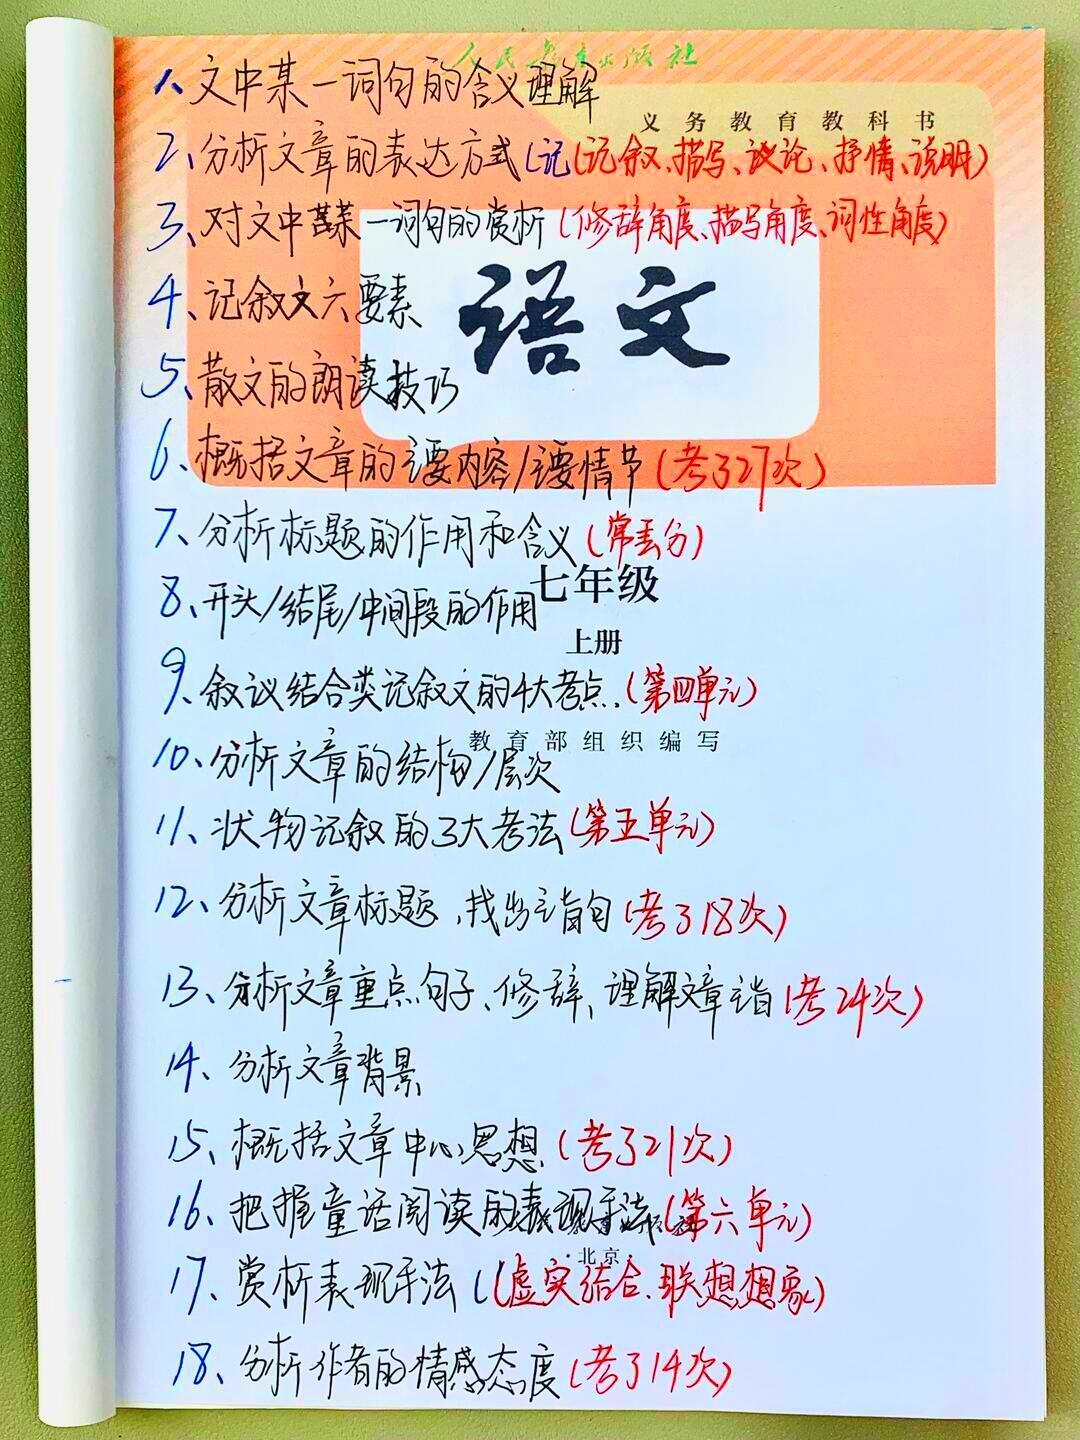 人民教育出版社
1、文中某一词句的含义理解
义务教育教科书
2、分析文章的表达方式(记(记叙、描写、议论、抒情、说明)
3、对文中某一词句的赏析(修辞角度、描写角度、词性角度)
语文
4、记叙文六要素
5、散文的朗读技巧
6、概括文章的主要内容/主要情节(考了27次)
7、分析标题的作用和含义(常丢分)
七年级
8、开头/结尾/中间段的作用
上册
9、叙议结合类记叙文的4大考点.(第四单元)
教育部组织编写
10、分析文章的结构/层次
11、状物记叙的3大考法(第五单元)
12、分析文章标题,找出主旨句(考了18次)
13、分析文章重点句子、修辞、理解文章主旨(考24次)
14、分析文章背景
15、概括文章中心思想(考了21次)
16、把握童话阅读的表现手法(第六单元)
·北京·
17、赏析表现手法((虚实结合、联想想象)
18、分析作者的情感态度(考了14次)